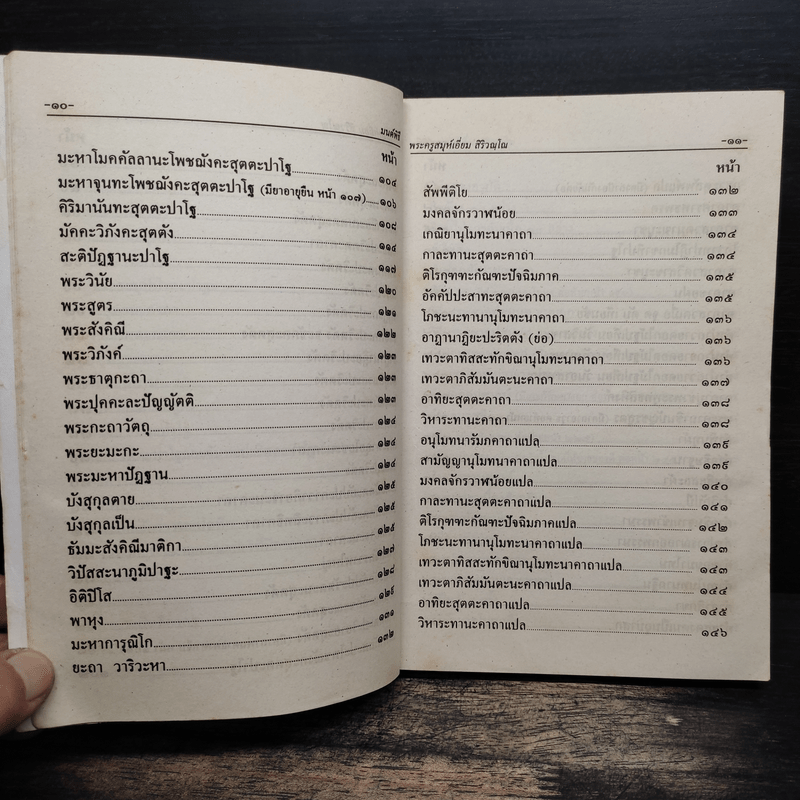 -๑๐-
มนต์พิธี
หน้า
มะหาโมคคัลลานะโพชฌังคะสุตตะปาโฐ ๑๐๔
มะหาจุนทะโพชฌังคะสุตตะปาโฐ (มียาอายุยืน หน้า ๑๐๗) ๑๐๖
คิริมานันทะสุตตะปาโฐ ๑๐๘
มัคคะวิภังคะสุตตัง ๑๑๔
สะติปัฏฐานะปาโฐ ๑๑๗
พระวินัย ๑๒๐
พระสูตร ๑๒๑
พระสังคิณี ๑๒๒
พระวิภังค์ ๑๒๓
พระธาตุกะถา ๑๒๓
พระปุคคะละปัญญัตติ ๑๒๓
พระกะถาวัตถุ ๑๒๔
พระยะมะกะ ๑๒๔
พระมะหาปัฏฐาน ๑๒๔
บังสุกุลตาย ๑๒๕
บังสุกุลเป็น ๑๒๕
ธัมมะสังคิณีมาติกา ๑๒๕
วิปัสสะนาภูมิปาฐะ ๑๒๗
อิติปิโส ๑๒๘
พาหุง ๑๒๙
มะหาการุณิโก ๑๓๑
ยะถา วาริวะหา ๑๓๒
พระครูสมุห์เอี่ยม สิริวณฺโณ -๑๑-
หน้า
สัพพีติโย ๑๓๒
มงคลจักรวาฬน้อย ๑๓๓
เกณิยานุโมทะนาคาถา ๑๓๔
กาละทานะสุตตะคาถา ๑๓๔
ติโรกุฑฑะกัณฑะปัจฉิมภาค ๑๓๕
อัคคัปปะสาทะสุตตะคาถา ๑๓๕
โภชะนะทานานุโมทะนาคาถา ๑๓๖
อาฏานาฏิยะปะริตตัง (ย่อ) ๑๓๖
เทวะตาทิสสะทักขิณานุโมทะนาคาถา ๑๓๖
เทวะตาภิสัมมันตะนะคาถา ๑๓๗
อาทิยะสุตตะคาถา ๑๓๘
วิหาระทานะคาถา ๑๓๘
อนุโมทนารัมภคาถาแปล ๑๓๙
สามัญญานุโมทนาคาถาแปล ๑๓๙
มงคลจักรวาฬน้อยแปล ๑๔๐
กาละทานะสุตตะคาถาแปล ๑๔๑
ติโรกุฑฑะกัณฑะปัจฉิมภาคแปล ๑๔๒
โภชะนะทานานุโมทะนาคาถาแปล ๑๔๓
เทวะตาทิสสะทักขิณานุโมทะนาคาถาแปล ๑๔๓
เทวะตาภิสัมมันตะนะคาถาแปล ๑๔๔
อาทิยะสุตตะคาถาแปล ๑๔๕
วิหาระทานะคาถาแปล ๑๔๖